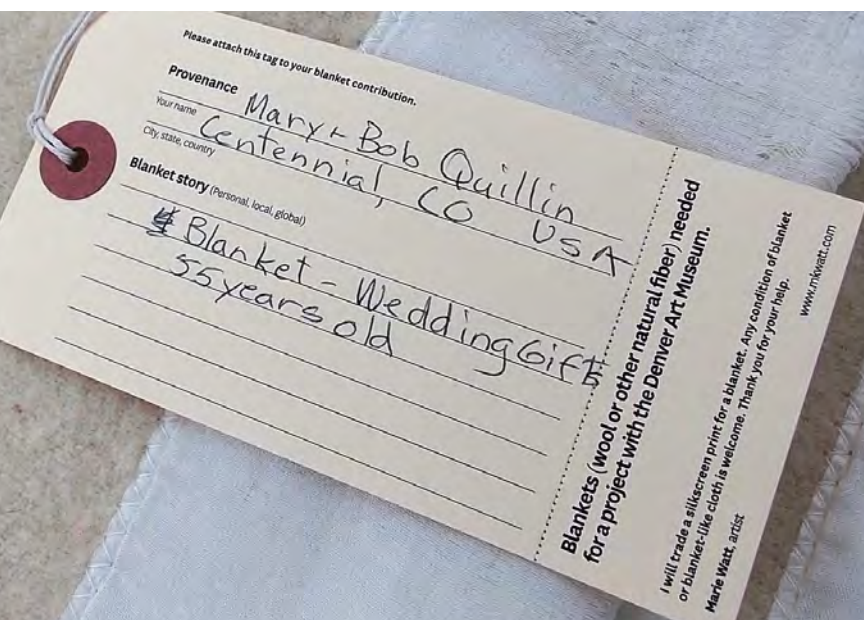 Please attach this tag to your blanket contribution.
Provenance
Your name Mary + Bob Quillin
City, state, country Centennial, CO USA
Blanket story (Personal, local, global)
Blanket - Wedding Gift
55 years old
Blankets (wool or other natural fiber) needed
for a project with the Denver Art Museum.
I will trade a silkscreen print for a blanket. Any condition of blanket
or blanket-like cloth is welcome. Thank you for your help.
Marie Watt, artist
www.mkwatt.com